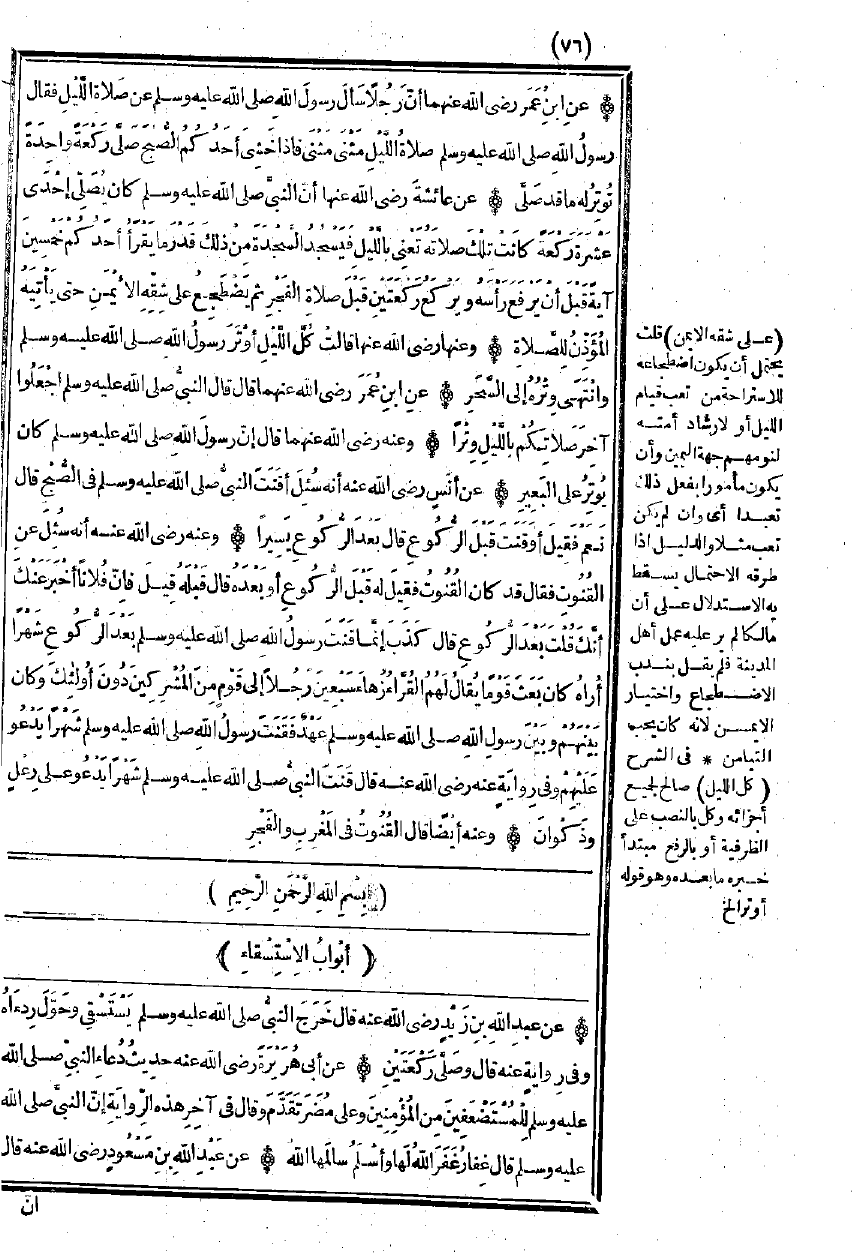 (٧٦)
۞ عنِ ابنِ عُمَر رضى الله عنهما أنّ رَجُلًا سَأَلَ رسولَ اللهِ صلى الله عليه وسلم عن صَلاةِ اللَّيلِ فقال
رسولُ اللهِ صلى الله عليه وسلم صلاةُ اللَّيْلِ مَثْنَى مَثْنَى فاذا خَشِىَ أَحَدُكُمُ الصُّبْحَ صَلَّى رَكْعَةً واحِدَةً
تُوتِرُ له ما قد صَلَّى ۞ عن عائشةَ رضى الله عنها أنّ النبىَّ صلى الله عليه وسلم كان يُصَلِّى إحْدَى
عَشْرَةَ رَكْعَةً كانَتْ تِلْكَ صَلاتَهُ تَعْنِى بِاللَّيلِ فَيَسْجُدُ السَّجْدَةَ مِن ذلكَ قَدْرَ ما يَقْرَأُ أَحَدُكم خَمْسِينَ
آيةً قَبْلَ أن يَرْفَعَ رَأْسَهُ ويَرْكَعُ رَكْعَتَيْنِ قَبْلَ صَلاةِ الفَجْرِ ثم يَضْطَجِعُ على شِقِّهِ الأَيْمَنِ حتى يَأْتِيَهُ
المُؤَذِّنُ لِلصَّلاةِ ۞ وعنها رضى الله عنها قالت كُلَّ اللَّيْلِ أَوْتَرَ رسولُ اللهِ صلى الله عليه وسلم
وانْتَهَى وِتْرُهُ إلى السَّحَرِ ۞ عنِ ابنِ عُمَرَ رضى الله عنهما قال قال النبىُّ صلى الله عليه وسلم اجْعَلُوا
آخِرَ صَلاتِكُمْ بِاللَّيْلِ وِتْرًا ۞ وعنه رضى الله عنهما قال إنّ رسولَ اللهِ صلى الله عليه وسلم كان
يُوتِرُ على البَعِيرِ ۞ عن أنَسٍ رضى الله عنه أنه سُئِلَ أقَنَتَ النبىُّ صلى الله عليه وسلم فى الصُّبْحِ قال
نَعَم فَقِيلَ أو قَنَتَ قَبْلَ الرُّكُوعِ قال بَعْدَ الرُّكُوعِ يَسِيرًا ۞ وعنه رضى الله عنه أنه سُئِلَ عنِ
القُنُوتِ فقال قد كان القُنُوتُ فقِيلَ له قَبْلَ الرُّكُوعِ أو بَعْدَهُ قال قَبْلَهُ قِيلَ فانّ فُلانًا أخْبَرَ عَنْكَ
أنَّكَ قُلْتَ بَعْدَ الرُّكُوعِ قال كَذَبَ إنَّمَا قَنَتَ رسولُ اللهِ صلى الله عليه وسلم بَعْدَ الرُّكُوعِ شَهْرًا
أُراهُ كان بَعَثَ قَوْمًا يُقالُ لَهُمُ القُرَّاءُ زُهاءَ سَبْعِينَ رَجُلاً إلى قَوْمٍ مِنَ المُشْرِكِينَ دُونَ أُولَئِكَ وكان
بَيْنَهُمْ وبَيْنَ رسولِ اللهِ صلى الله عليه وسلم عَهْدٌ فَقَنَتَ رسولُ اللهِ صلى الله عليه وسلم شَهْرًا يَدْعُو
عَلَيْهِمْ وفى رِوايةٍ عنه رضى الله عنه قال قَنَتَ النبىُّ صلى الله عليه وسلم شَهْرًا يَدْعُو على رِعْلٍ
وذَكْوانَ ۞ وعنه أيْضًا قال القُنُوتُ فى المَغْرِبِ والفَجْرِ
(بِسْمِ اللهِ الرَّحْمَنِ الرَّحِيمِ)
(أبْوابُ الاِسْتِسْقاءِ)
۞ عن عبدِ اللهِ بنِ زَيْدٍ رضى الله عنه قال خَرَجَ النبىُّ صلى الله عليه وسلم يَسْتَسْقِى وحَوَّلَ رِداءَهُ
وفى رِوايةٍ عنه قال وصَلَّى رَكْعَتَيْنِ ۞ عن أبى هُرَيْرَةَ رضى الله عنه حديثُ دُعاءِ النبىِّ صلى الله
عليه وسلم لِلْمُسْتَضْعَفِينَ مِنَ المُؤْمِنِينَ وعلى مُضَرَ تَقَدَّمَ وقال فى آخِرِ هذه الرِّوايةِ إنّ النبىَّ صلى الله
عليه وسلم قال غِفارُ غَفَرَ اللهُ لَها وأَسْلَمُ سالَمَها اللهُ ۞ عن عَبْدِ اللهِ بنِ مَسْعُودٍ رضى الله عنه قال
انّ
(على شقه الايمن) قلت
يحتمل أن يكون اضطجاعه
للاستراحة من تعب قيام
الليل أو لارشاد أمته
لنومهم جهة اليمين وأن
يكون مأمورا بفعل ذلك
تعبدا أى وان لم يكن
تعب مثلا والدليل اذا
طرقه الاحتمال يسقط
به الاستدلال على أن
مالكا لم ير عليه عمل أهل
المدينة فلم يقل بندب
الاضطجاع واختيار
الايمن لانه كان يحب
التيامن * فى الشرح
(كل الليل) صالح لجميع
أجزائه وكل بالنصب على
الظرفية أو بالرفع مبتدأ
خبره ما بعده وهو قوله
أوتر الخ